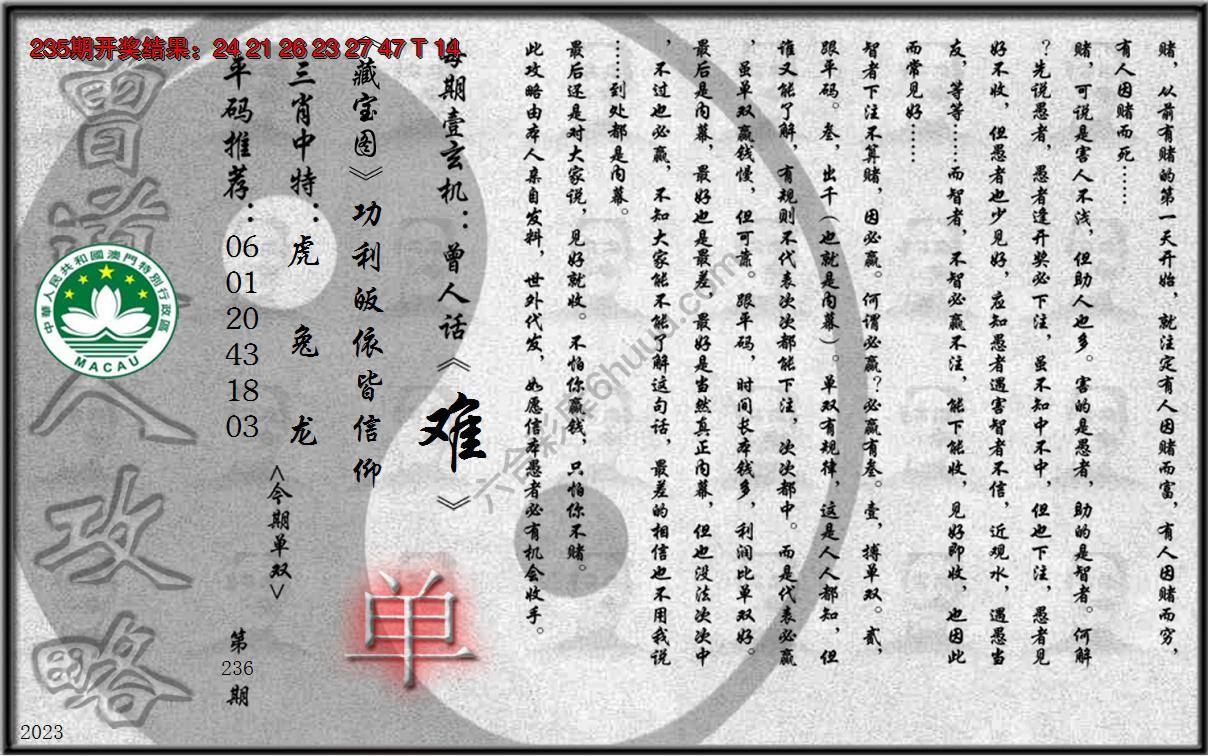 235期开奖结果：24 21 26 23 27 47 T 14
赌，从前有赌的第一天开始，就注定有人因赌而富，有人因赌而穷，
有人因赌而死……
赌，可说是害人不浅，但助人也多。害的是愚者，助的是智者。何解
？先说愚者，愚者逢开奖必下注，虽不知中不中，但也下注，愚者见
好不收，但愚者也少见好，应知愚者遇害智者不信，近观水，遇愚当
友，等等……而智者，不智必赢不注，能下能收，见好即收，也因此
而常见好……
智者下注不算赌，因必赢。何谓必赢？必赢有叁。壹，搏单双。贰，
跟平码。叁，出千（也就是内幕）。单双有规律，这是人人都知，但
谁又能了解，有规则不代表次次都能下注，次次都中。而是代表必赢
，虽单双赢钱慢，但可靠。跟平码，时间长本钱多，利润比单双好。
最后是内幕，最好也是最差，最好是当然真正内幕，但也没法次次中
，不过也必赢，不知大家能不能了解这句话，最差的相信也不用我说
……到处都是内幕。
最后还是对大家说，见好就收。不怕你赢钱，只怕你不赌。
此攻略由本人亲自发料，世外代发，如愿信本愚者必有机会收手。
每期壹玄机：曾人话《难》
《藏宝图》功利皈依皆信仰
三肖中特：虎 兔 龙
平码推荐：06 01 20 43 18 03
<今期单双>
单
第236期
曾道人攻略
中華人民共和國澳門特別行政區
MACAU
六合彩库6huuu.com
2023